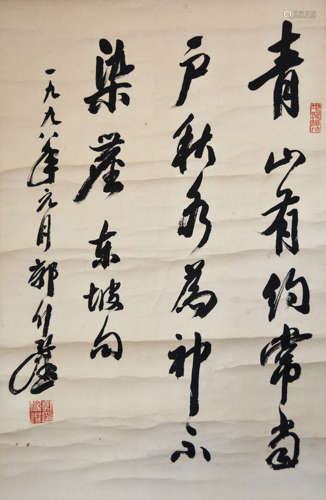 青山有约常当
户秋水为神不
染尘东坡句
一九九八年元月郭仲